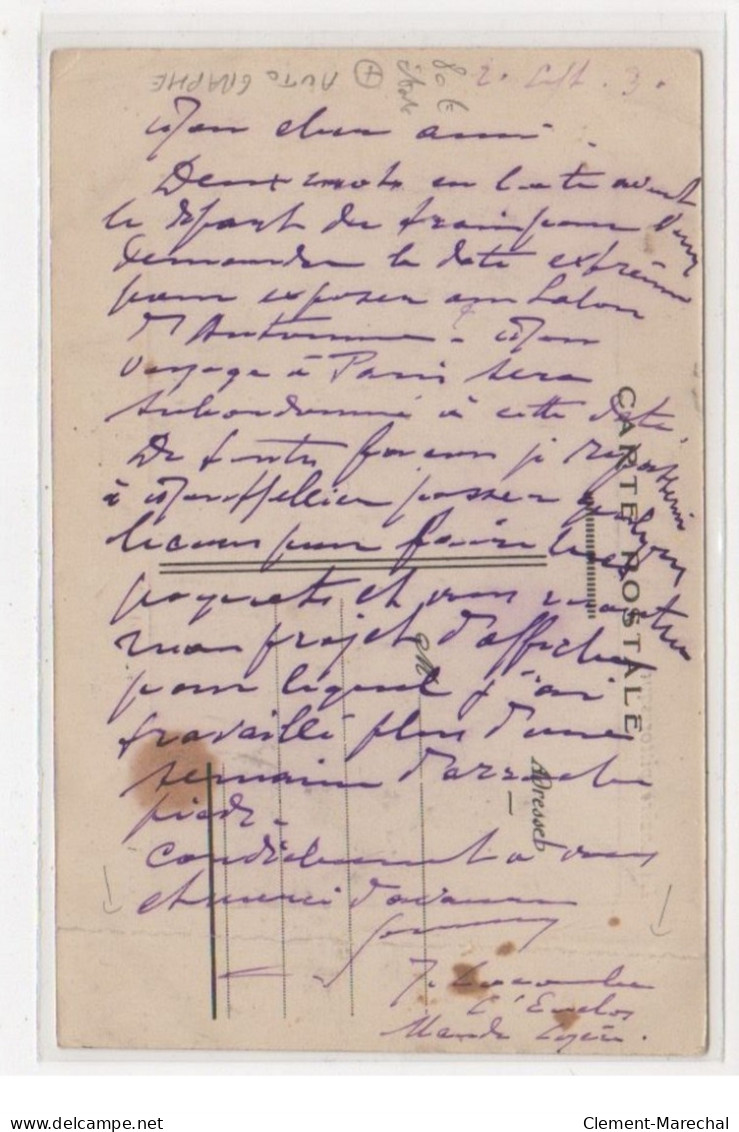 AUTOGRAPHE
Mon cher ami
Deux mots en hate avant
le départ du train pour vous
demander la date extrême
pour exposer au Salon
d'Automne. Mon
voyage à Paris sera
subordonné à cette date.
De toutes façons je
à Montpellier passer quelques
heures pour faire mes
paquets et vous montrer
mon projet d'affiche
pour lequel j'ai
travaillé plus d'une
semaine d'arrache
pied.
Cordialement à vous
et merci d'avance
J. Lacombe
L'Enclos
Mende Lozère.
CARTE POSTALE
Adresse
delcampe.net
Clement-Marechal